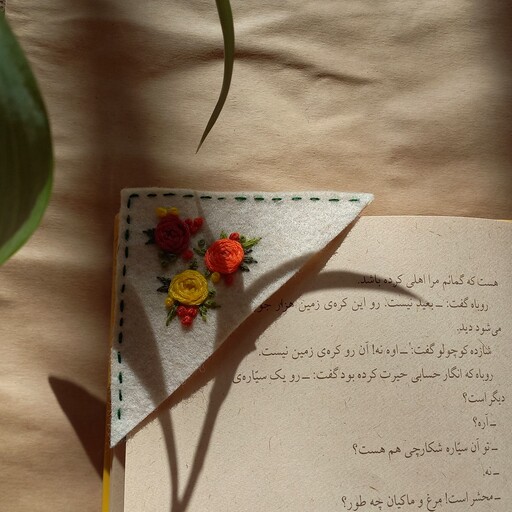 هست که گمانم مرا اهلی کرده باشد.
روباه گفت: ــ بعید نیست. رو این کره‌ی زمین هزار جور
می‌شود دید.
شازده کوچولو گفت: ــ اوه نه! آن رو کره‌ی زمین نیست.
روباه که انگار حسابی حیرت کرده بود گفت: ــ رو یک سیّاره‌ی
دیگر است؟
ــ آره؟
ــ تو آن سیّاره شکارچی هم هست؟
ــ نه.
ــ محشر است! مرغ و ماکیان چه طور؟